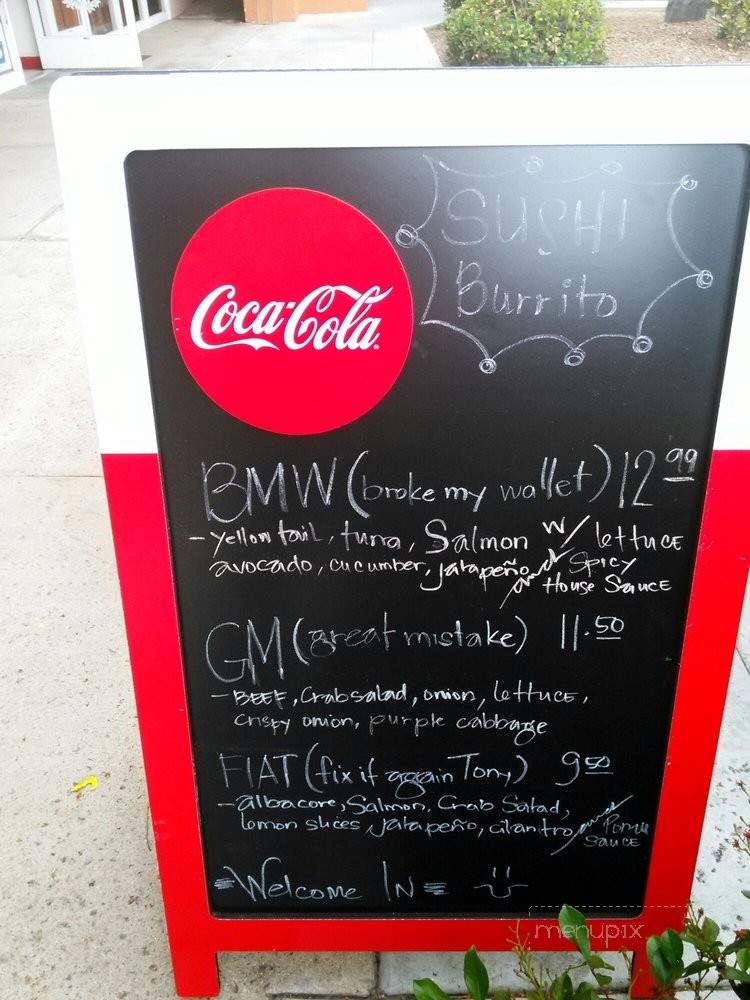 Coca-Cola
SUSHI
Burrito
BMW (broke my wallet) 12 99
- yellow tail, tuna, Salmon w/ lettuce
avocado, cucumber, jalapeño and Spicy
House Sauce
GM (great mistake) 11.50
- BEEF, Crab salad, onion, lettuce,
crispy onion, purple cabbage
FIAT (fix it again Tony) 9 50
- albacore, Salmon, Crab Salad,
lemon slices, jalapeño, cilantro and Ponzu
Sauce
= Welcome In =
menupix